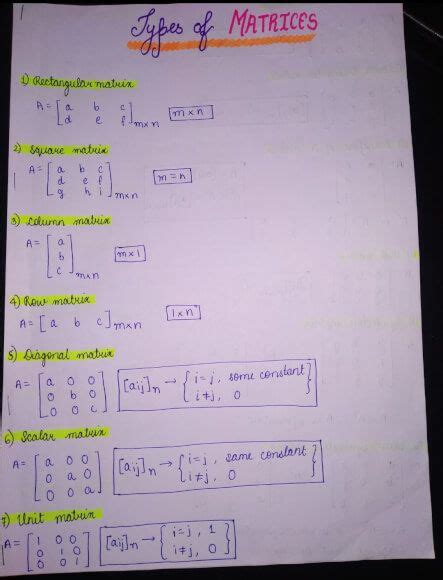 Types of MATRICES
1) Rectangular matrix
A = [a b c
d e f]m×n [m × n]
2) Square matrix
A = [a b c
d e f
g h i]m×n [m = n]
3) Column matrix
A = [a
b
c]m×n [m×1]
4) Row matrix
A = [a b c]m×n [1×n]
5) Diagonal matrix
A = [a 0 0
0 b 0
0 0 c] [aij]n → {i=j, some constant
i≠j, 0}
6) Scalar matrix
A = [a 0 0
0 a 0
0 0 a] [aij]n → {i=j, same constant
i≠j, 0}
7) Unit matrix
A = [1 0 0
0 1 0
0 0 1] [aij]n → {i=j, 1
i≠j, 0}